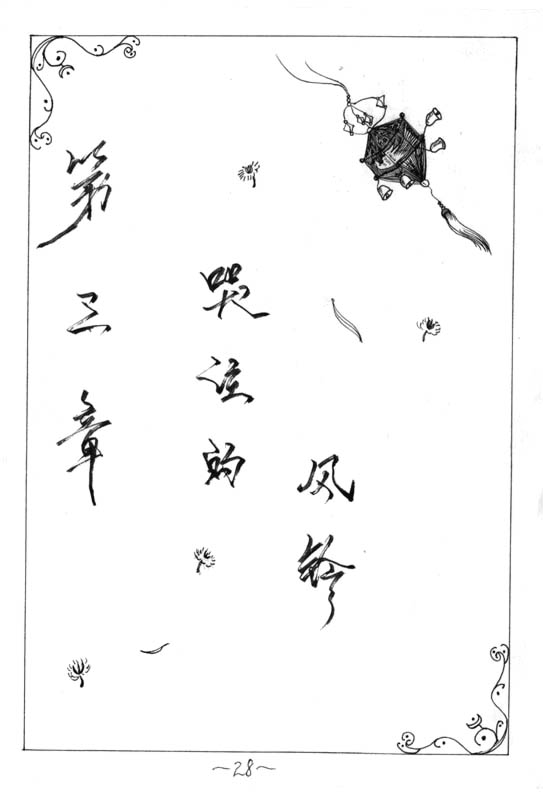 第三章
哭泣的
风铃
~28~